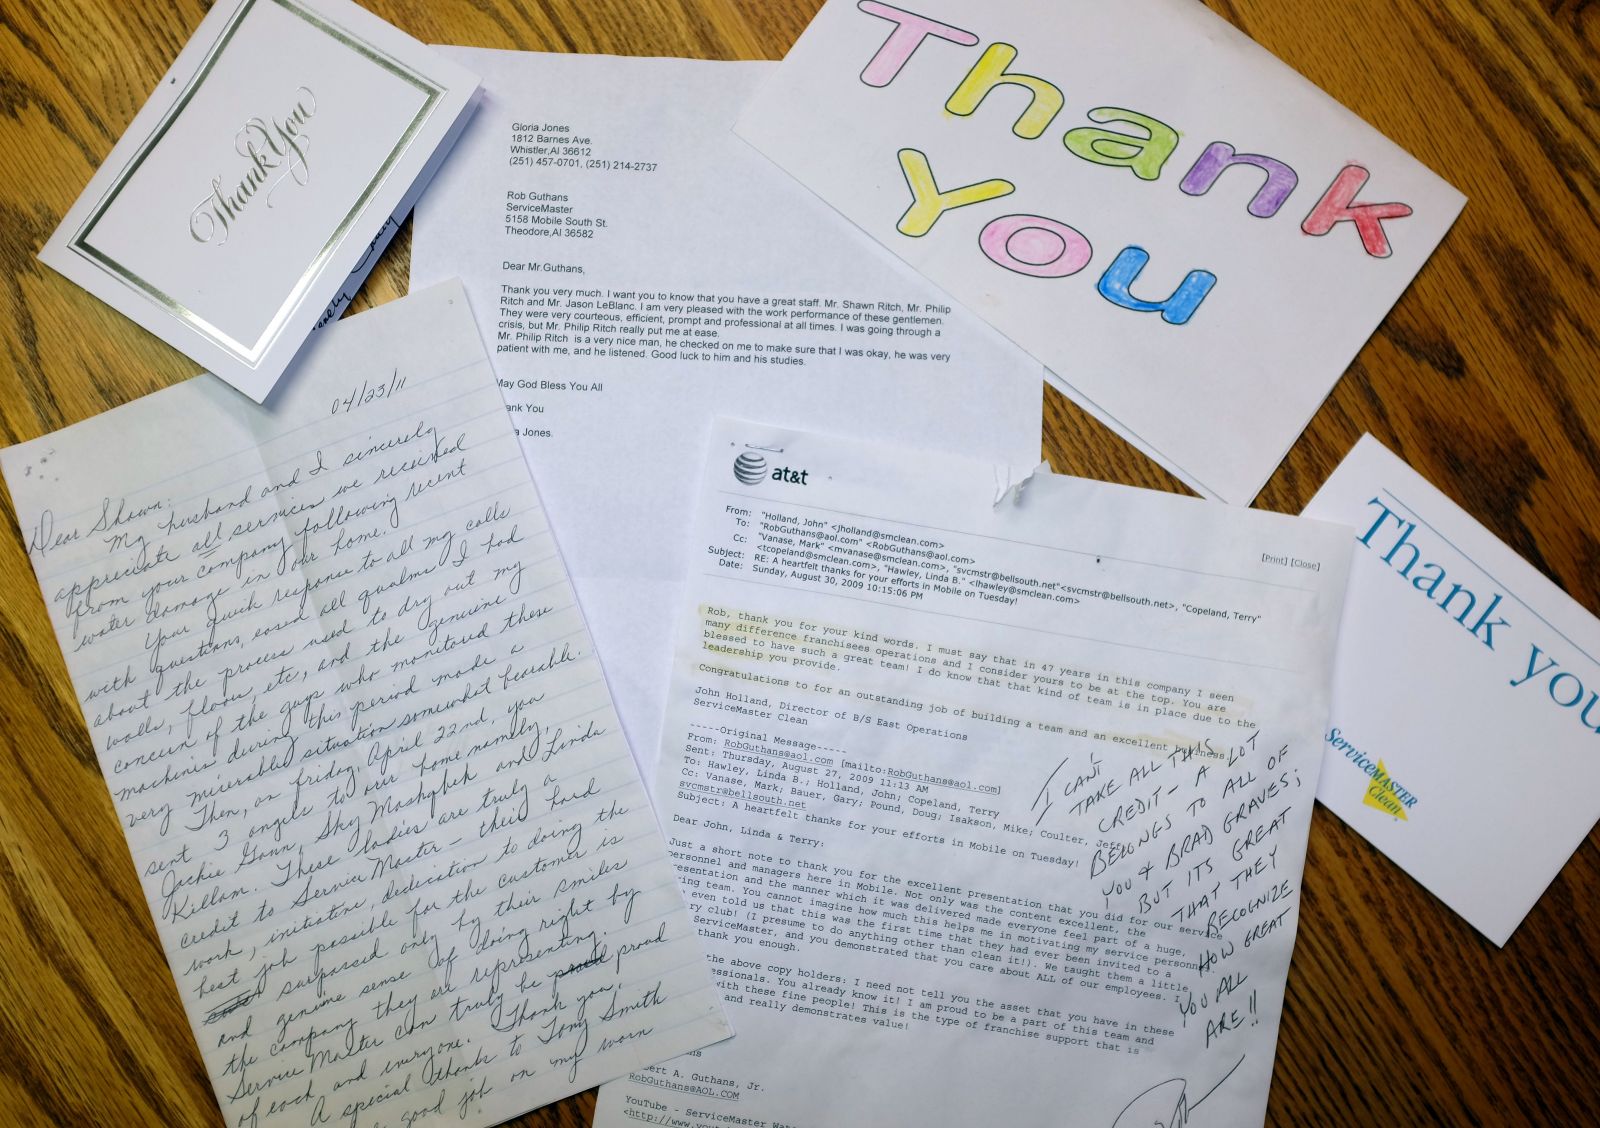 Thank You
Gloria Jones
1812 Barnes Ave.
Whistler,Al 36612
(251) 457-0701, (251) 214-2737
Rob Guthans
ServiceMaster
5158 Mobile South St.
Theodore,Al 36582
Dear Mr.Guthans,
Thank you very much. I want you to know that you have a great staff. Mr. Shawn Ritch, Mr. Philip
Ritch and Mr. Jason LeBlanc. I am very pleased with the work performance of these gentlemen.
They were very courteous, efficient, prompt and professional at all times. I was going through a
crisis, but Mr. Philip Ritch really put me at ease.
Mr. Philip Ritch is a very nice man, he checked on me to make sure that I was okay, he was very
patient with me, and he listened. Good luck to him and his studies.
May God Bless You All
ank You
a Jones.
Thank
You
04/23/11
Dear Shawn:
My husband and I sincerely
appreciate all services we received
from your company following recent
water damage in our home.
Your quick response to all my calls
with questions, eased all qualms I had
about the process used to dry out my
walls, floors, etc, and the genuine
concern of the guys who monitored these
machines during this period made a
very miserable situation somewhat bearable.
Then, on Friday, April 22nd, you
sent 3 angels to our home namely,
Jackie Gann, Sky and Linda
Killam. These ladies are truly a
credit to Service Master - their hard
work, initiative, dedication to doing the
best job possible for the customer is
surpassed only by their smiles
and genuine sense of doing right by
the company they are representing.
Service Master can truly be proud proud
of each and everyone. Thank you,
A special thanks to Tony Smith
good job on my worn
at&t
[Print] [Close]
From: "Holland, John" <Jholland@smclean.com>
To: "RobGuthans@aol.com" <RobGuthans@aol.com>
Cc: "Vanase, Mark" <mvanase@smclean.com>, "svcmstr@bellsouth.net"<svcmstr@bellsouth.net>, "Copeland, Terry"
<tcopeland@smclean.com>, "Hawley, Linda B." <lhawley@smclean.com>
Subject: RE: A heartfelt thanks for your efforts in Mobile on Tuesday!
Date: Sunday, August 30, 2009 10:15:06 PM
Rob, thank you for your kind words. I must say that in 47 years in this company I seen
many difference franchisees operations and I consider yours to be at the top. You are
blessed to have such a great team! I do know that that kind of team is in place due to the
leadership you provide.
Congratulations to for an outstanding job of building a team and an excellent business.
John Holland, Director of B/S East Operations
ServiceMaster Clean
-----Original Message-----
From: RobGuthans@aol.com [mailto:RobGuthans@aol.com]
Sent: Thursday, August 27, 2009 11:13 AM
To: Hawley, Linda B.; Holland, John; Copeland, Terry
Cc: Vanase, Mark; Bauer, Gary; Pound, Doug; Isakson, Mike; Coulter, Jeff;
svcmstr@bellsouth.net
Subject: A heartfelt thanks for your efforts in Mobile on Tuesday!
Dear John, Linda & Terry:
Just a short note to thank you for the excellent presentation that you did for our service
personnel and managers here in Mobile. Not only was the content excellent, the
esentation and the manner which it was delivered made everyone feel part of a huge,
ring team. You cannot imagine how much this helps me in motivating my service personnel.
even told us that this was the first time that they had ever been invited to a
ry club! (I presume to do anything other than clean it!). We taught them a little
ServiceMaster, and you demonstrated that you care about ALL of our employees. I
thank you enough.
the above copy holders: I need not tell you the asset that you have in these
essionals. You already know it! I am proud to be a part of this team and
with these fine people! This is the type of franchise support that is
and really demonstrates value!
ns
bert A. Guthans, Jr.
RobGuthans@AOL.COM
YouTube - ServiceMaster Wat
<http://www.yout
I CAN'T
TAKE ALL THIS
CREDIT - A LOT
BELONGS TO ALL OF
YOU & BRAD GRAVES;
BUT ITS GREAT
THAT THEY
RECOGNIZE
HOW GREAT
YOU ALL
ARE!!
Thank you
ServiceMASTER
Clean